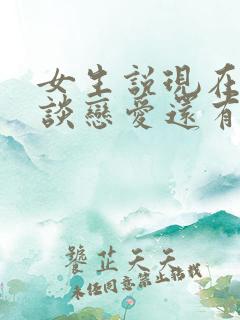 女生説現在
談戀愛還有
饕芷天天
未任同意禁止轉載